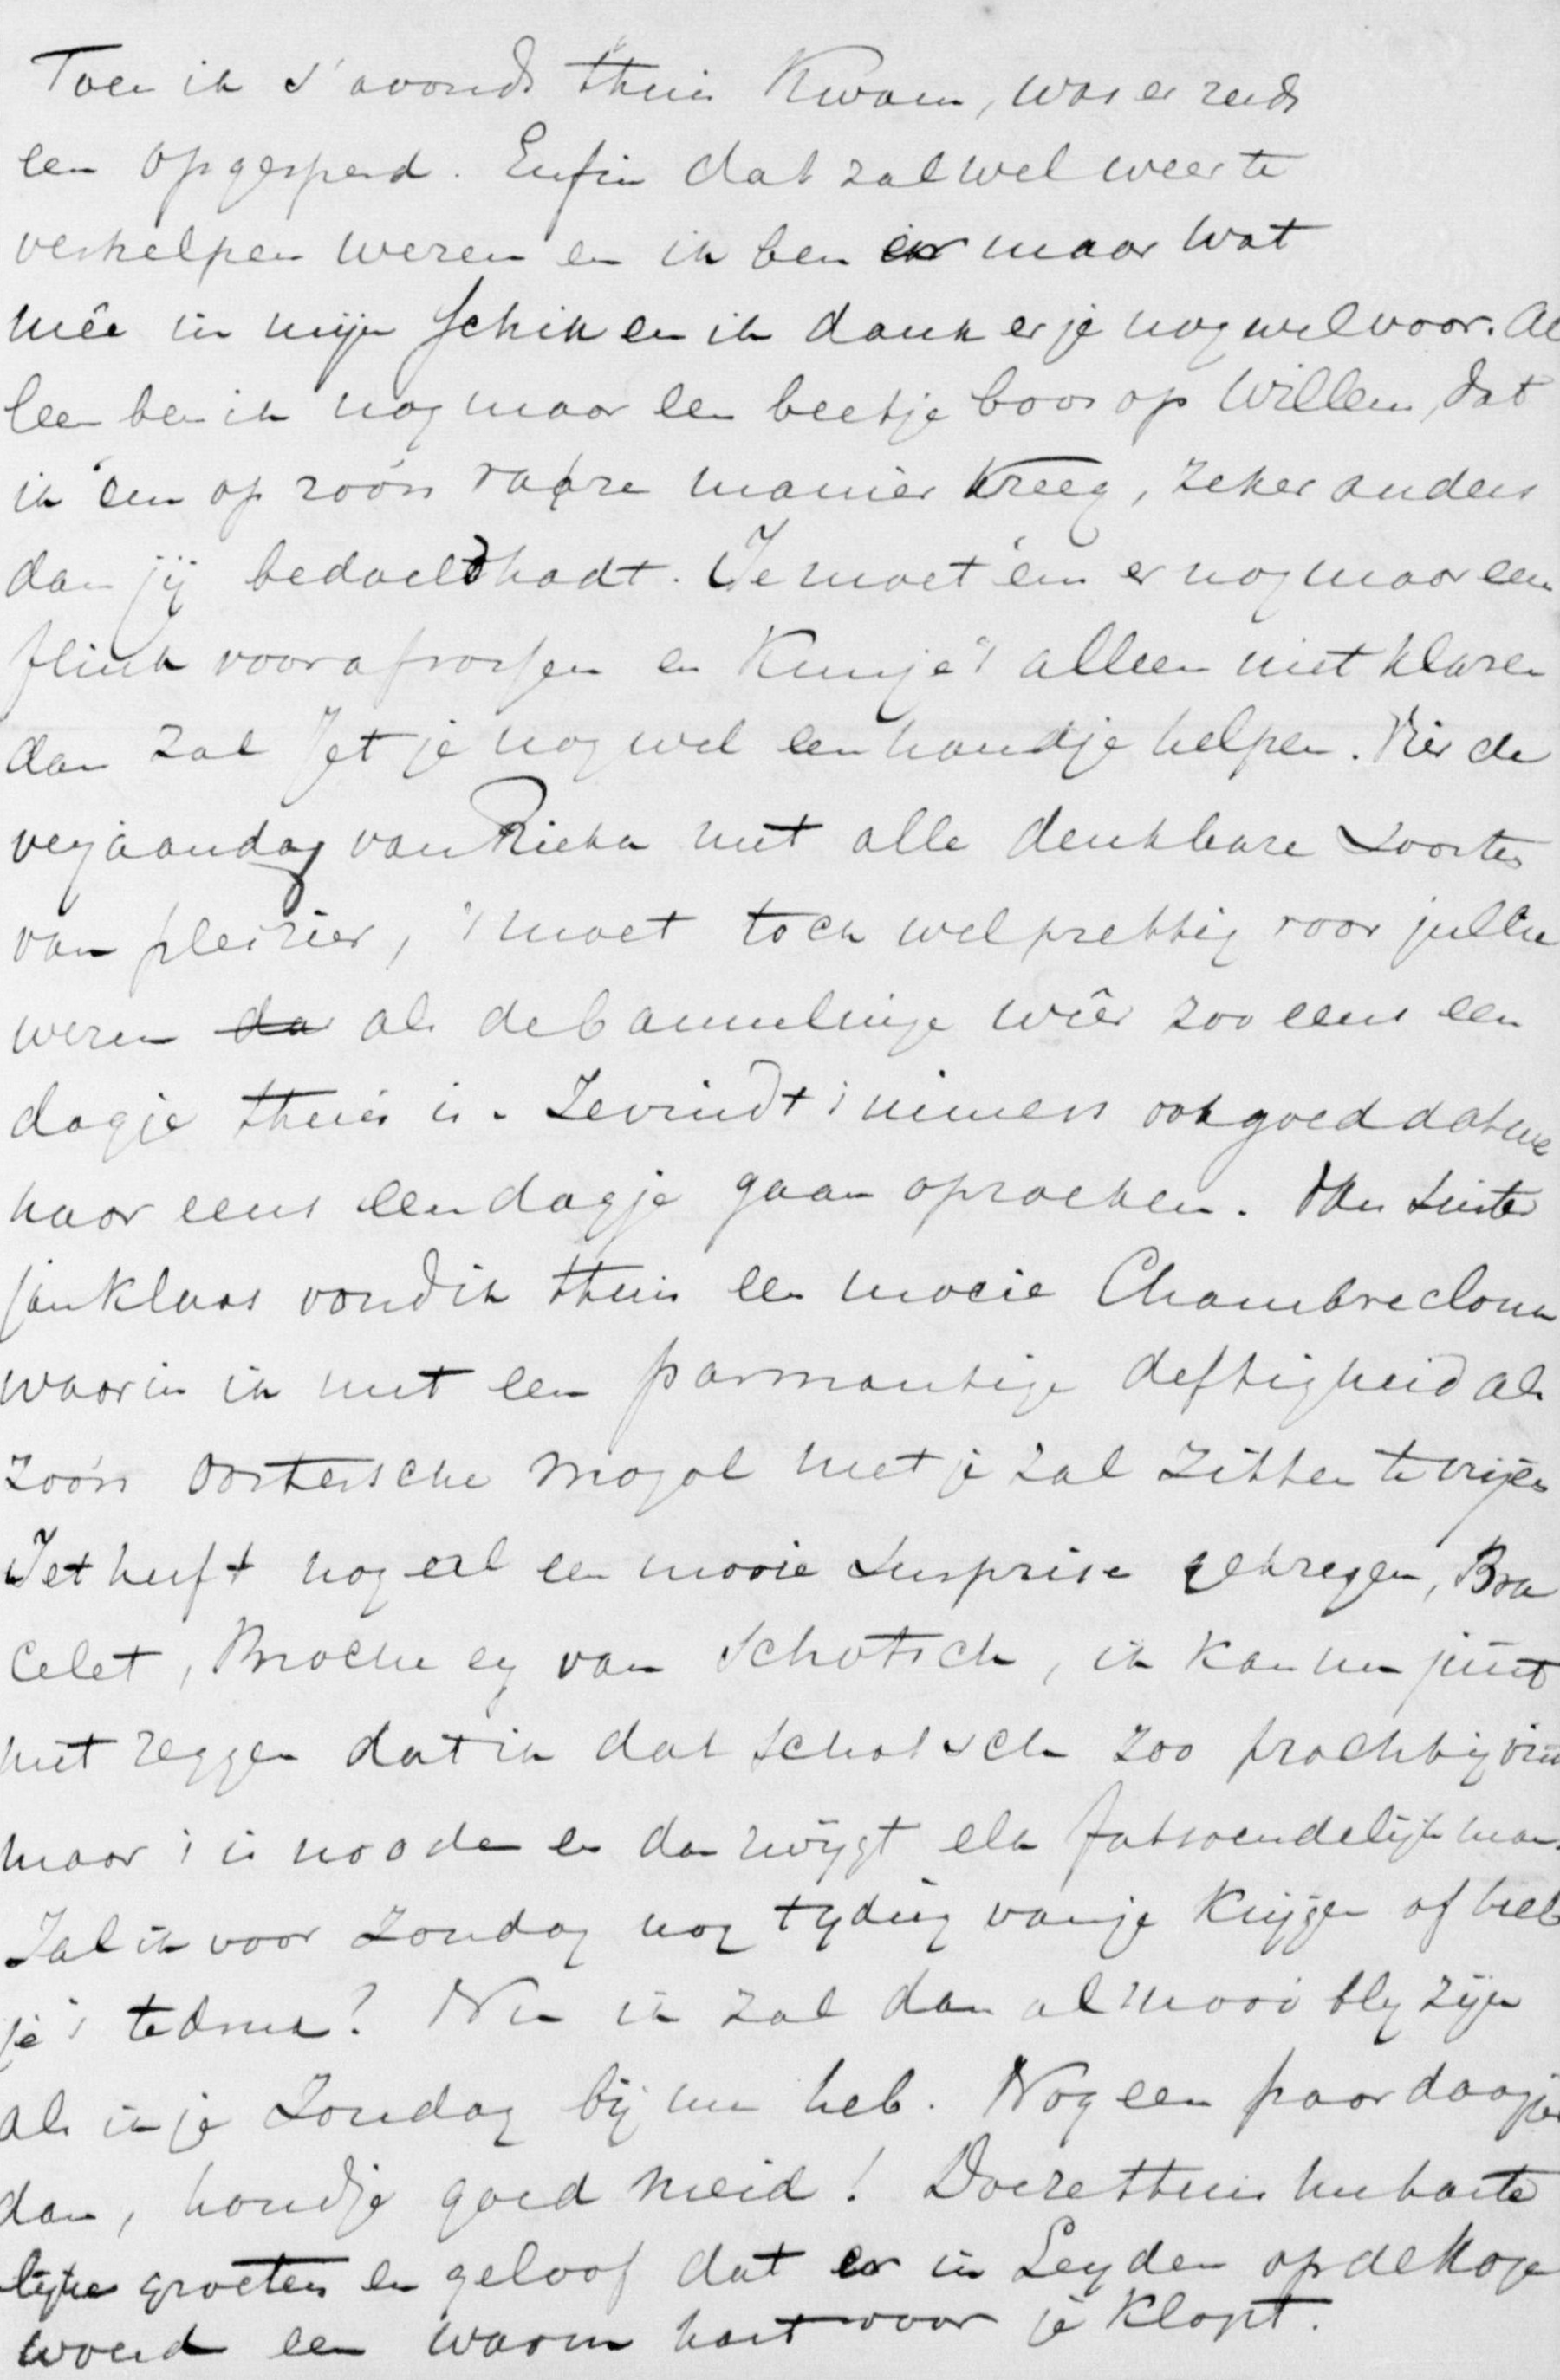 Toen ik s'avonds thuis kwam, was er reeds
een opgesperd. Enfin dat zal wel weer te
verhelpen wezen en ik ben er maar wat
mêe in mijn schik en ik dank er je nog wel voor. Al
leen ben ik nog maar een beetje boos op Willem, dat
ik 'em op zoo'n rare manier kreeg, zeker anders
dan jij bedoeld hadt. Je moet 'em er nog maar een
flink voor afrossen en kun je 't alleen niet klaren
dan zal Jet je nog wel een handje helpen. Vier de
verjaardag van Rieka met alle denkbare soorten
van pleizier, 't moet toch wel prettig voor jullie
wezen da als de bannelinge wêer zoo eens een
dagje thuis is. Ze vindt 't immers ook goed dat we
haar eens een dagje gaan opzoeken. Van Sinter
janklaas vond ik thuis een mooie Chambrecloak
waarin ik met een parmantige deftigheid als
zoo'n Oostersche mogol met je zal zitten te vrijen
Jet heeft nog een mooie surprise gekregen, Bra
celet, Broche enz van Schotsch, ik kan nu juist
niet zeggen dat ik dat Schotsch zoo prachtig vind
maar 't is mode en dan zwijgt elk fatsoendelijk man.
Zal ik voor Zondag nog tyding van je krijgen of heb
je 't te druk? Nu ik zal dan al mooi bly zijn
als ik je Zondag bij me heb. Nog een paar daagjes
dan, houdje goed meid! Doe ze thuis meharte
lijke groeten en geloof dat er in Leyden op de Hooge
woerd een warm hart voor je klopt.